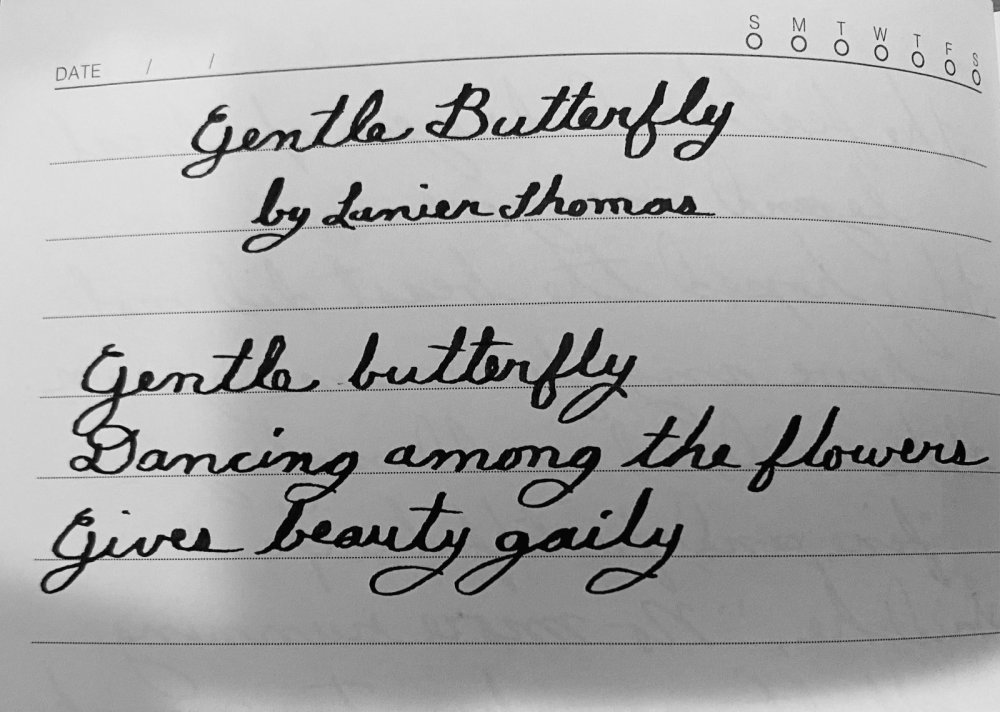 S M T W T F S
DATE / /
Gentle Butterfly
by Lanier Thomas
Gentle butterfly
Dancing among the flowers
Gives beauty gaily